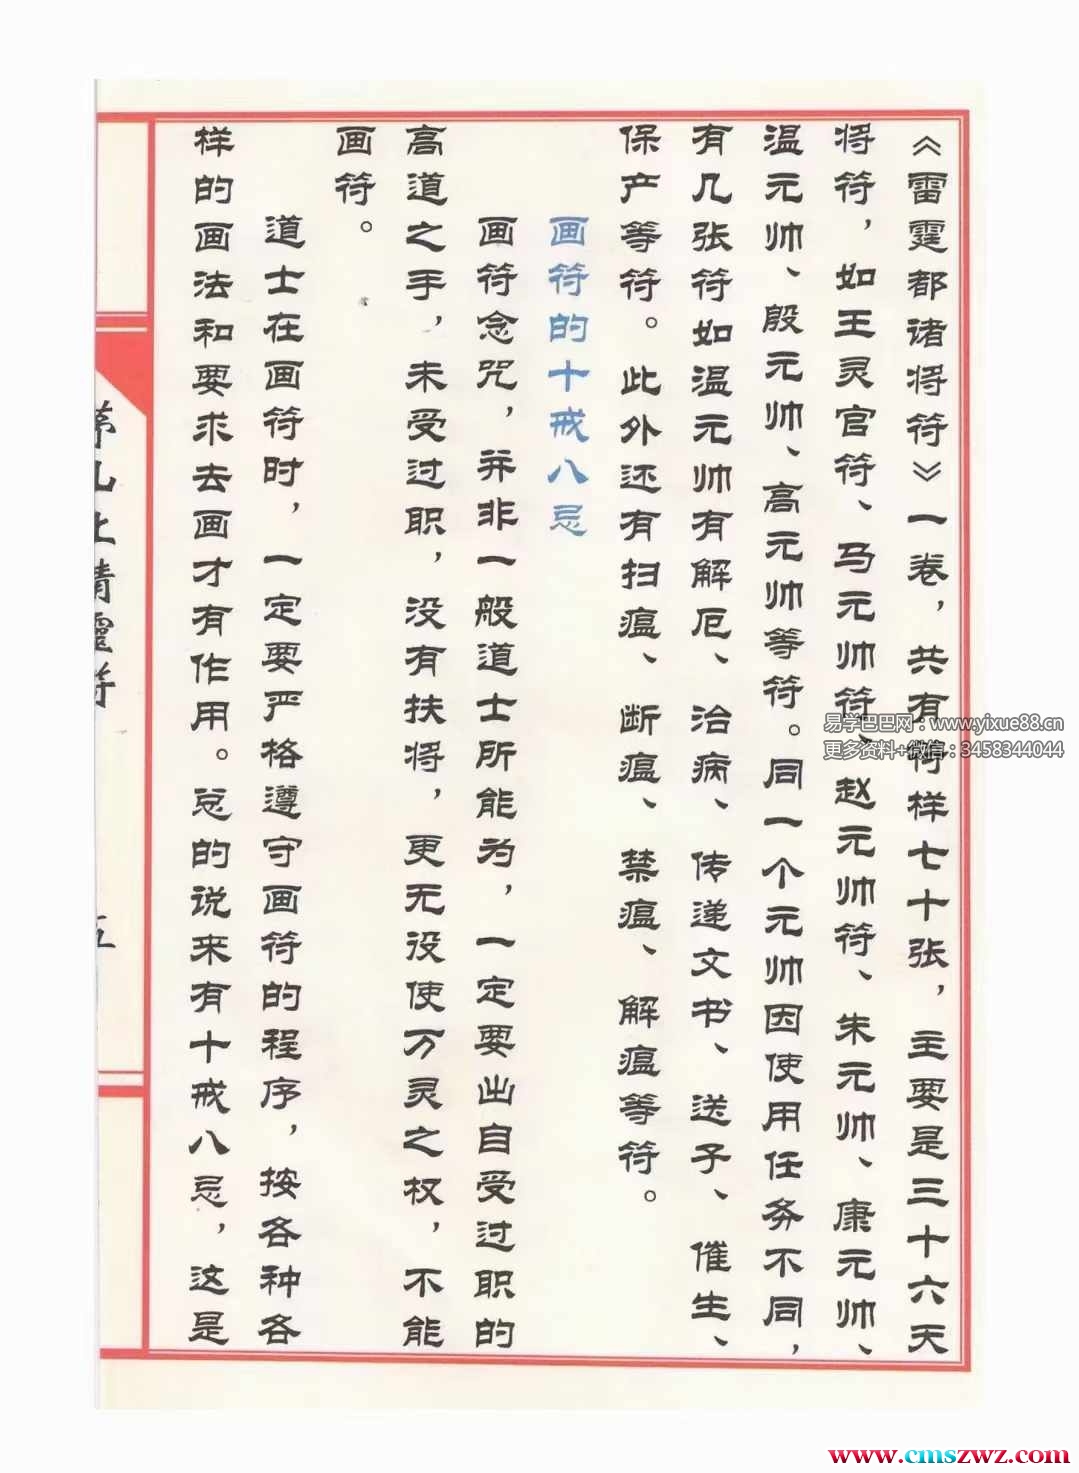 《雷霆都诸将符》一卷，共有将样七十张，主要是三十六天
将符，如王灵官符、马元帅符、赵元帅符、朱元帅、康元帅、
温元帅、殷元帅、高元帅等符。同一个元帅因使用任务不同，
有几张符如温元帅有解厄、治病、传递文书、送子、催生、
保产等符。此外还有扫瘟、断瘟、禁瘟、解瘟等符。
画符的十戒八忌
画符念咒，并非一般道士所能为，一定要出自受过职的
高道之手，未受过职，没有扶将，更无役使万灵之权，不能
画符。
道士在画符时，一定要严格遵守画符的程序，按各种各
样的画法和要求去画才有作用。总的说来有十戒八忌，这是
上清靈符
五
易学巴巴网：www.yixue88.cn
更多资料+微信：3458344044
www.cmszwz.com